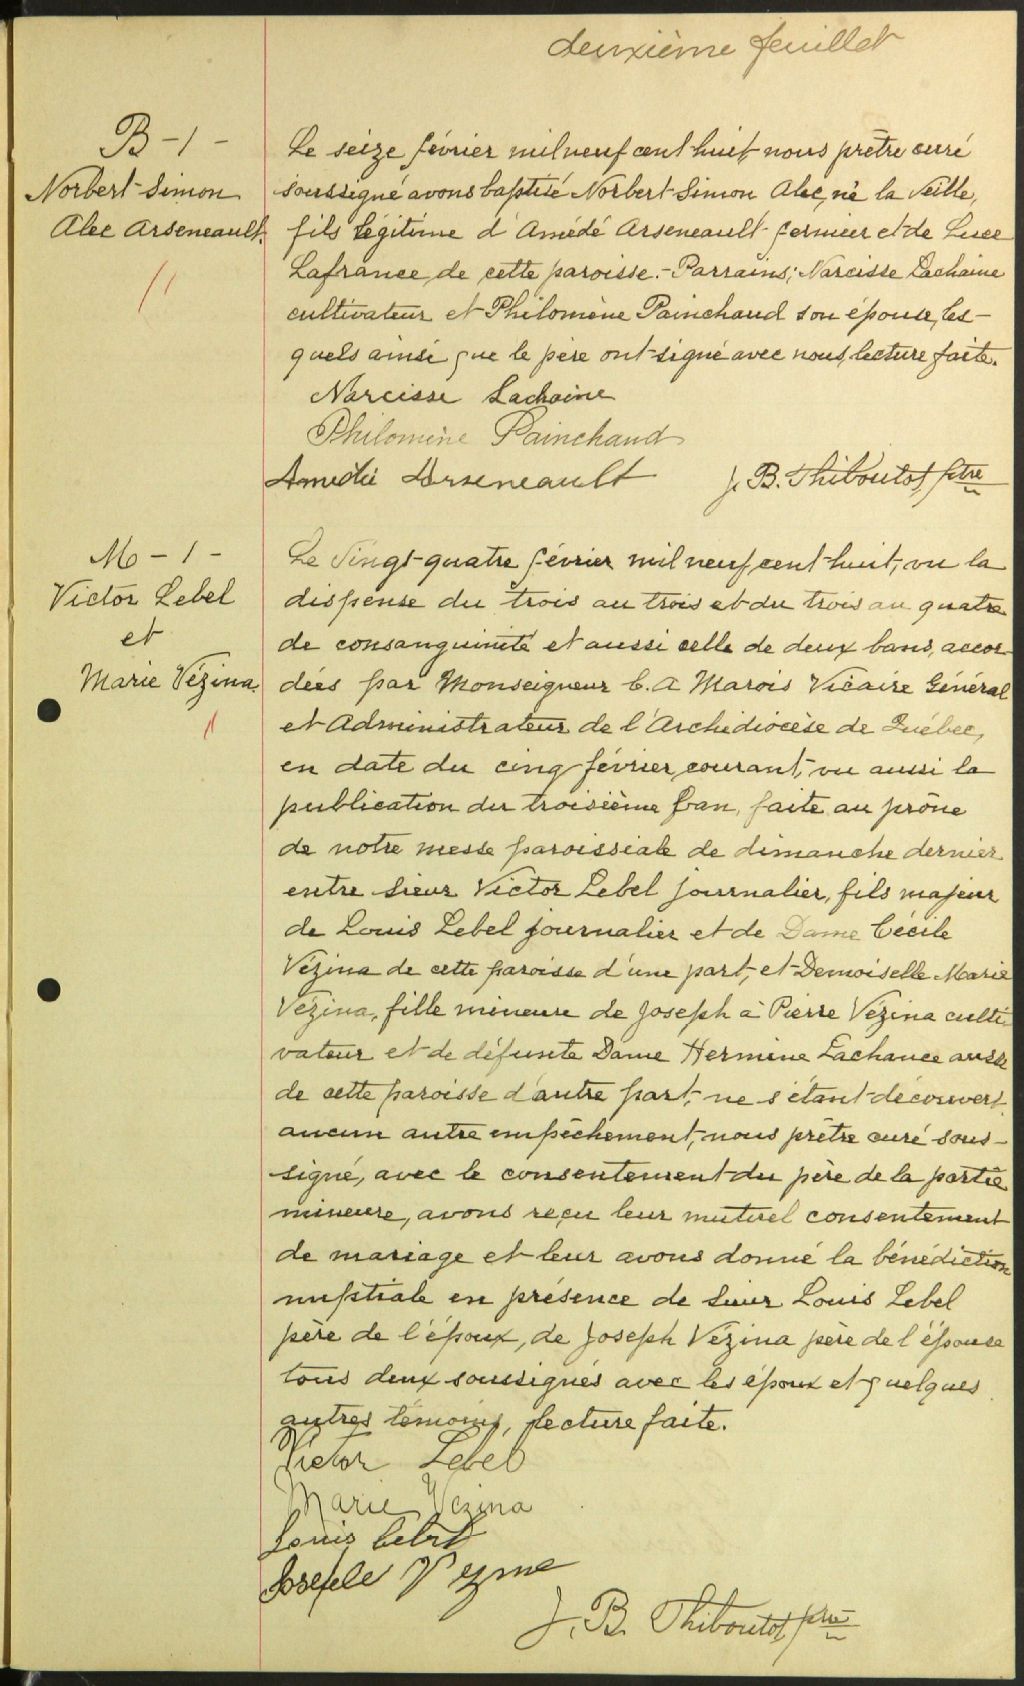 deuxième feuillet
B - 1 -
Norbert Simon
Alec Arseneault.
Le seize février mil neuf cent huit, nous prêtre curé
soussigné avons baptisé Norbert Simon Alec, né la veille,
fils légitime d'Amédé Arseneault fermier et de Luce
Lafrance de cette paroisse. - Parrains; Narcisse Lachaine
cultivateur et Philomène Painchaud son épouse, les-
quels ainsi que le père ont signé avec nous, lecture faite.
Narcisse Lachaine
Philomène Painchaud
Amédée Arseneault
J. B. Thiboutot, ptre
M - 1 -
Victor Lebel
et
Marie Vézina.
Le vingt-quatre février mil neuf cent huit, vu la
dispense du trois au trois et du trois au quatre
de consanguinité et aussi celle de deux bans, accor-
dées par Monseigneur C. A Marois Vicaire Général
et Administrateur de l'Archidiocèse de Québec,
en date du cinq février courant, vu aussi la
publication du troisième ban, faite au prône
de notre messe paroissiale de dimanche dernier
entre Sieur Victor Lebel journalier, fils majeur
de Louis Lebel journalier et de Dame Cécile
Vézina de cette paroisse d'une part, et Demoiselle Marie
Vézina, fille mineure de Joseph à Pierre Vézina culti-
vateur et de défunte Dame Hermine Lachance aussi
de cette paroisse d'autre part, ne s'étant découvert
aucun autre empêchement, nous prêtre curé sous-
signé, avec le consentement du père de la partie
mineure, avons reçu leur mutuel consentement
de mariage et leur avons donné la bénédiction
nuptiale en présence de Sieur Louis Lebel
père de l'époux, de Joseph Vézina père de l'épouse
tous deux soussignés avec les époux et quelques
autres témoins, lecture faite.
Victor Lebel
Marie Vézina
Louis Lebel
Joseph Vezina
J. B. Thiboutot, ptre